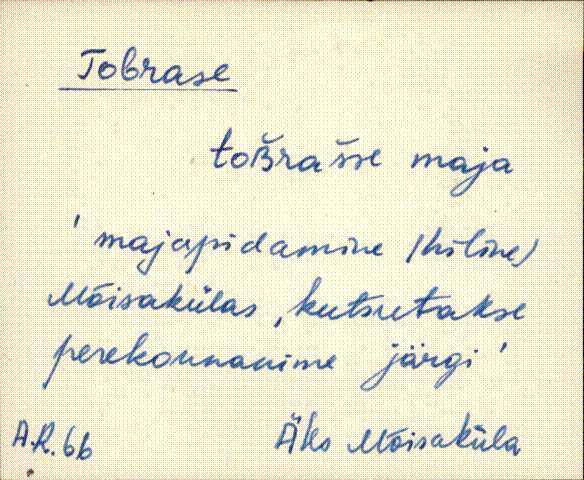 Tobrase
toʙ̆rašse maja
' majapidamine /hiline/
Mõisakülas, kutsutakse
perekonnanime järgi '
A.R. 66 Äks Mõisaküla